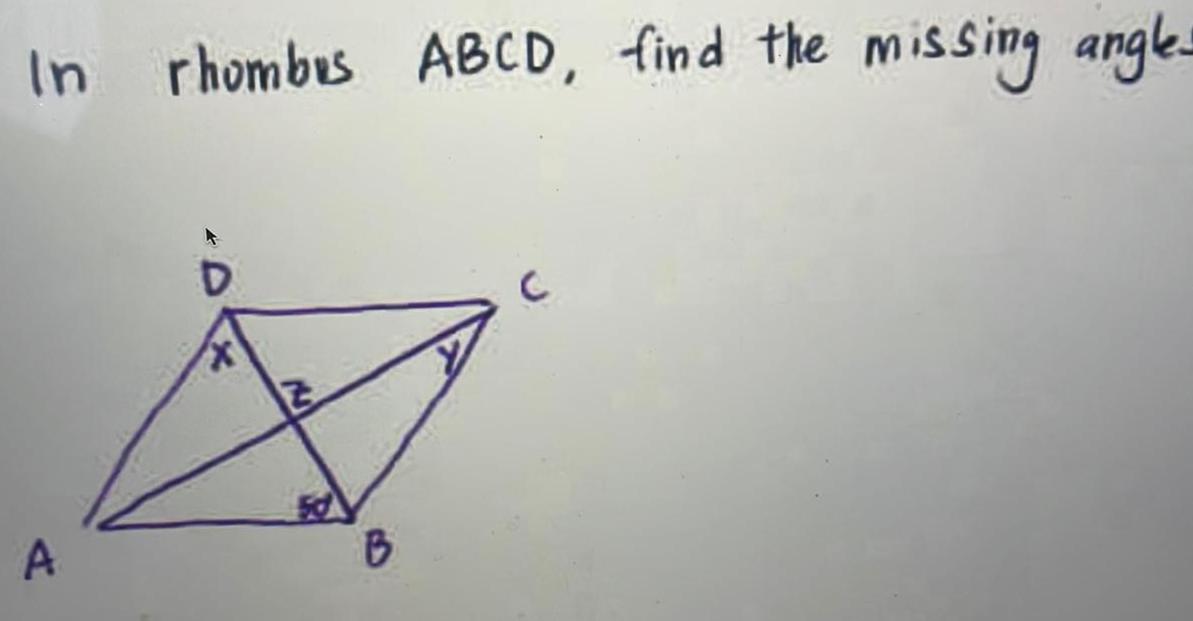 In rhombus ABCD, find the missing angles
D
C
X
Y
Z
50°
A
B